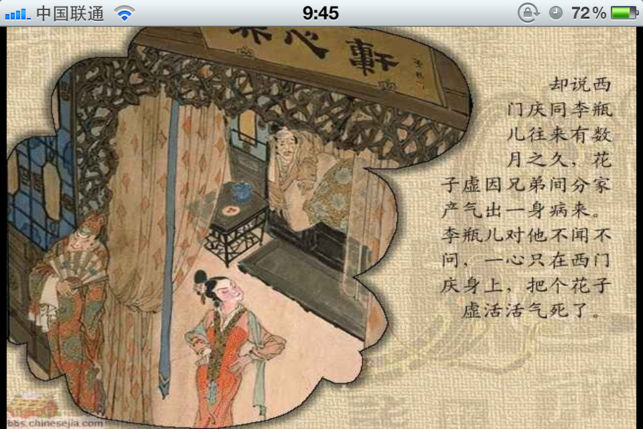 中国联通 9:45 72%
却说西
门庆同李瓶
儿往来有数
月之久，花
子虚因兄弟间分家
产气出一身病来。
李瓶儿对他不闻不
问，一心只在西门
庆身上，把个花子
虚活活气死了。
心轩
bbs.chinesejia.com